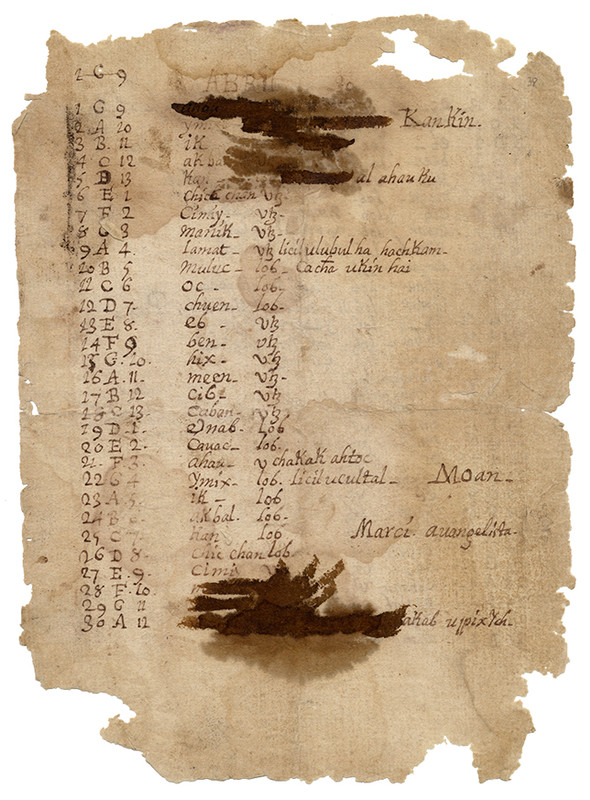 1 G 9
ABRIL
1 G 9 Kankin.
2 A 10 ymix
3 B. 11 ik
4 C 12 akbal
5 D 13 kan al ahau ku
6 E 1 chicchan vtz
7 F 2 Cimiy- vtz-
8 G 3 manik- vtz-
9 A 4. Lamat- vtz licil ulubul ha hach kam-
10 B 5 muluc- lob- Cacha u kin hai
11 C 6 oc- lob-
12 D 7- chuen- lob-
13 E 8- eb- vtz
14 F 9 ben- vtz
15 G. 10. hix- vtz-
16 A. 11- meen- vtz-
17 B 12 Cib- vtz
18 C. 13- Caban- vtz-
19 D. 1- Eznab- lob
20 E 2- Cauac- lob-
21- F 3- ahau- v chakak ahtoc
22 G 4 Ymix- lob. licil ucultal- Moan-
23 A 5- ik- lob
24 B 6- akbal. lob-
25 C 7- kan lob Marci. auangelista-
26 D 8- Chicchan lob-
27 E. 9- Cimi
28 F. 10
29 G 11
30 A 12 akab u pixych-